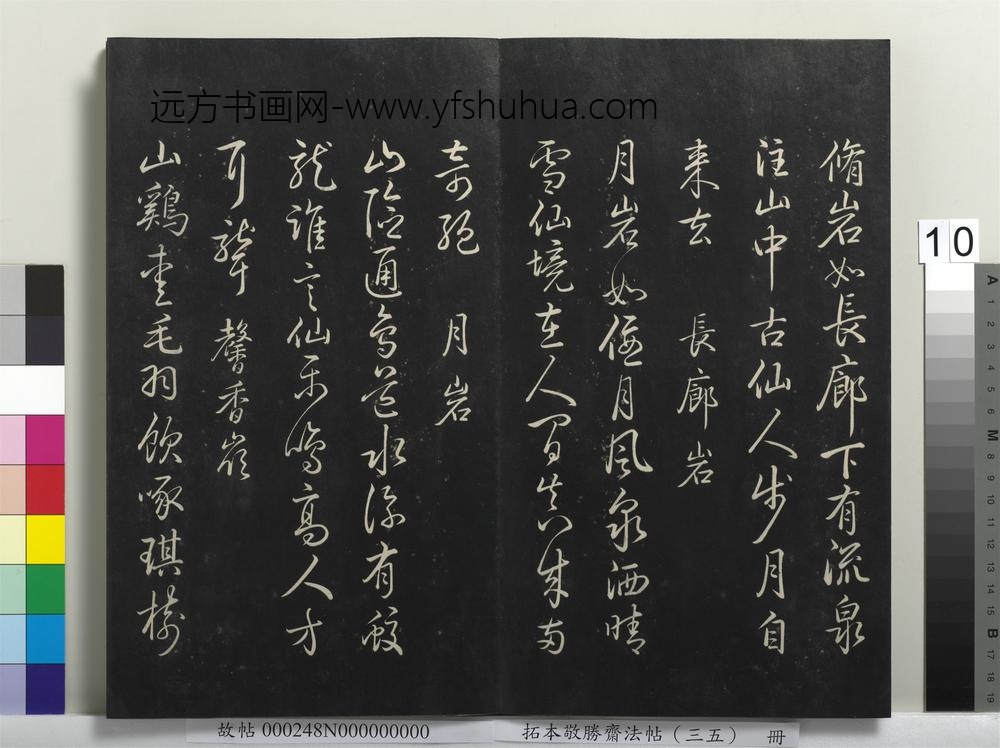 远方书画网-www.yfshuhua.com
脩岩如長廊下有流泉
注山中古仙人步月自
来去 長廊岩
月岩如偃月風泉洒晴
雪仙境在人間真成两
奇絕 月岩
山險通鳥道水深有蛟
龍誰言仙樂鳴高人方
耳聾 馨香巖
山鷄愛毛羽飲啄琪樹
10
A 1 2 3 4 5 6 M 8 9 10 11 12 13 14 15 B 17 18 19
故帖 000248N000000000
拓本敬勝齋法帖（三五） 冊